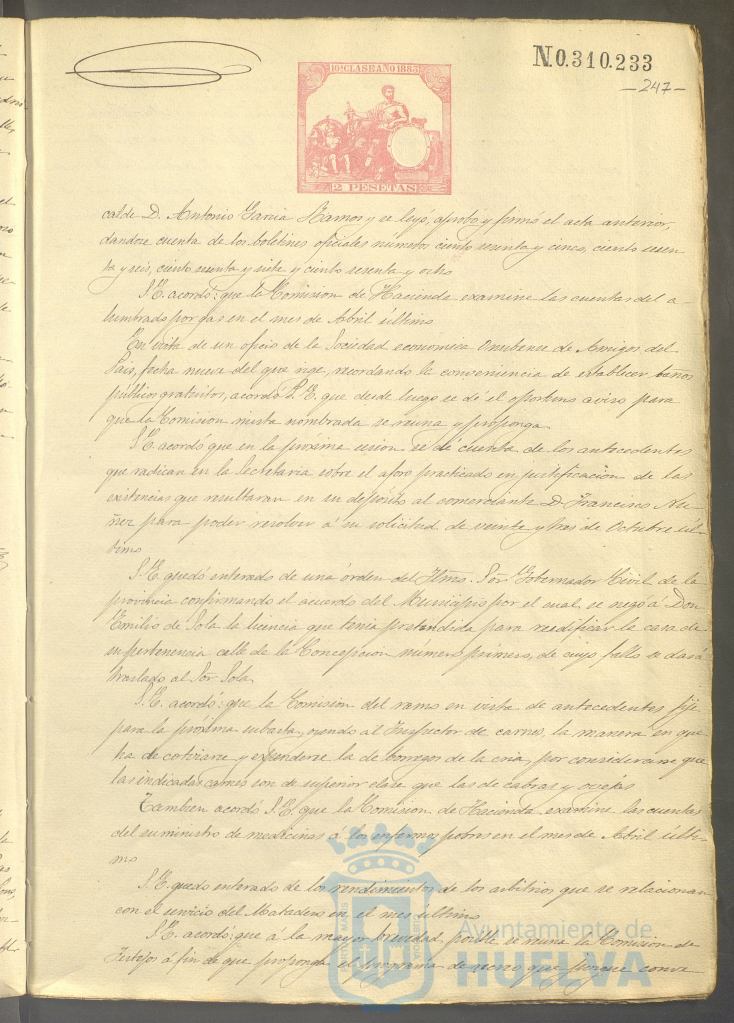 N.0.310.233
—247—
10ª CLASE AÑO 1883
2 PESETAS
calde D. Antonio Garcia Ramos y se leyó, aprobó y firmó el acta anterior,
dandose cuenta de los boletines oficiales numeros ciento sesenta y cinco, ciento sesen
ta y seis, ciento sesenta y siete y ciento sesenta y ocho
S.E. acordó: que la Comision de Hacienda examine las cuentas del a-
lumbrado por gas en el mes de Abril último
En vista de un oficio de la Sociedad económica Onubense de Amigos del
Pais, fecha nueve del que rige, recordando la conveniencia de establecer baños
públicos gratuitos, acordó S.E. que desde luego se dé el oportuno aviso para
que la Comision mista nombrada se reuna y proponga
S.E. acordó que en la proxima sesion se dé cuenta de los antecedentes
que radican en la Secretaria sobre el aforo practicado en justificacion de las
existencias que resultaran en su deposito al comerciante D. Francisco Mu-
ñoz para poder resolver a su solicitud de veinte y tres de Octubre úl-
timo
S.E. quedó enterado de una órden del Iltmo. Sor. Gobernador Civil de la
provincia confirmando el acuerdo del Municipio por el cual se negó á Don
Emilio de Sola la licencia que tenia pretendida para reedificar la casa de
su pertenencia calle de la Concepcion numero primero, de cuyo fallo se dará
traslado al Sor Sola
S.E. acordó: que la Comision del ramo en vista de antecedentes fije
para la próxima subasta, oyendo al Inspector de carnes, la manera en que
ha de cotizarse y espenderse la de borregos de la cria, por considerarse que
las indicadas carnes son de superior clase que las de cabras y ovejas
Tambien acordó S.E. que la Comision de Hacienda examine las cuentas
del suministro de medicinas á los enfermos pobres en el mes de Abril últi-
mo
S.E. quedó enterado de los rendimientos de los arbitrios que se relacionan
con el servicio del Matadero en el mes último
S.E. acordó: que á la mayor brevedad posible se reuna la Comision de
Festejos á fin de que proponga el programa de los que juzgue conve
Ayuntamiento de
HUELVA